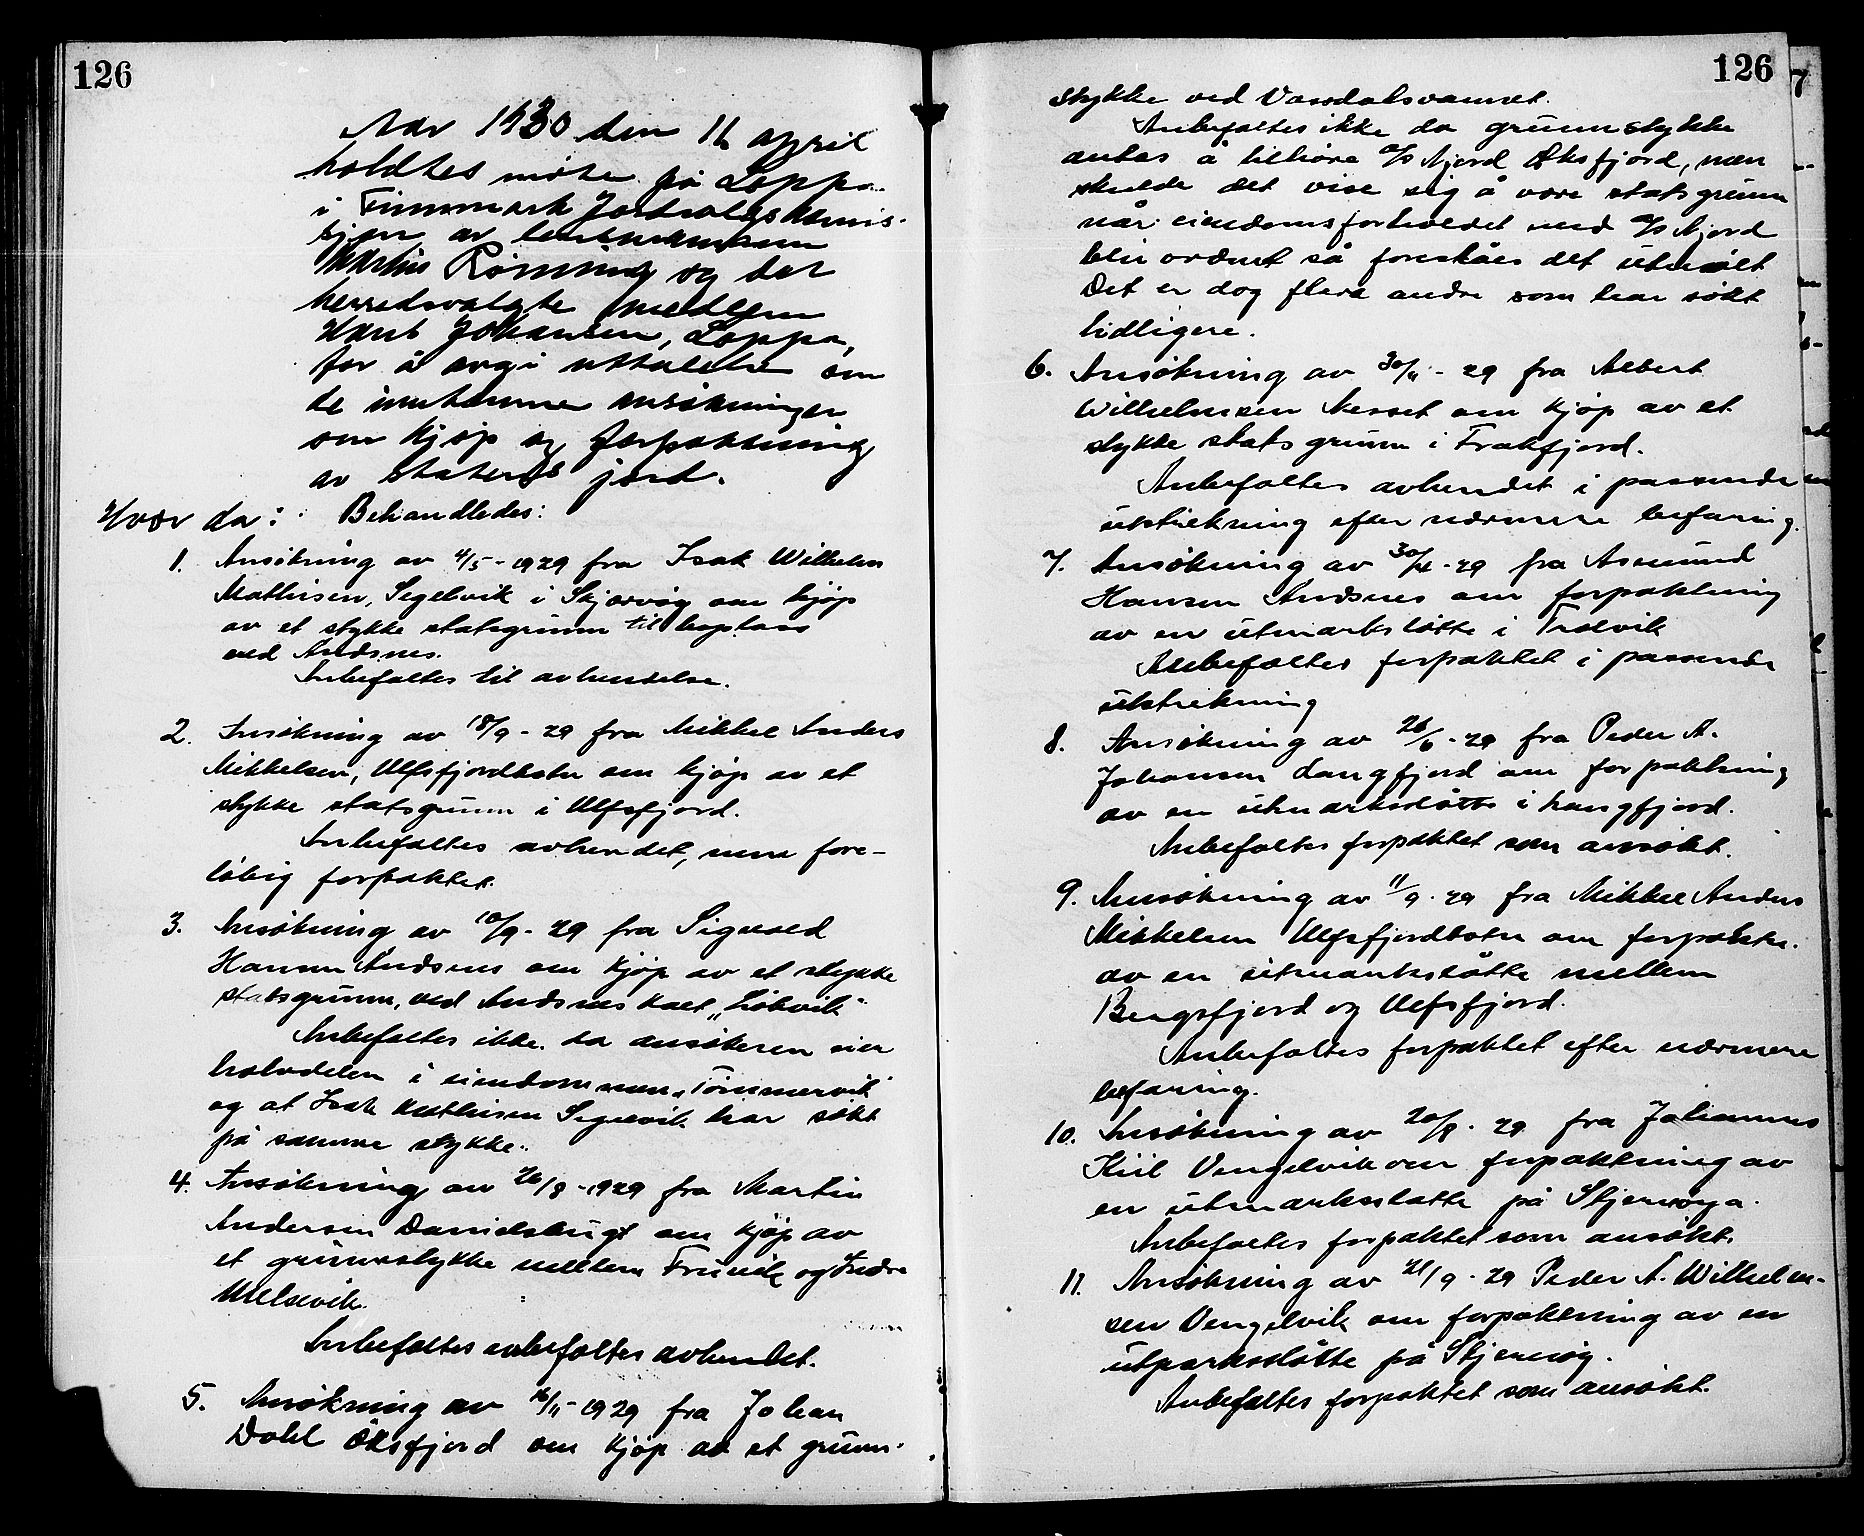 126
Aar 1930 den 11 april
holdtes møte på Loppa
i Finnmark Jordsalgskomis-
sjon av lensmannen
Martin Rønning og det
herredsvalgte medlem
Hans Johansen, Loppa,
for å avgi uttalelse om
de innkomne ansøkninger
om kjøp og forpaktning
av statens jord.
Hvor da: Behandledes:
1. Ansøkning av 4/5-1929 fra Isak Wilhelm
Mathisen, Segelvik i Skjærvøy om kjøp
av et stykke statsgrunn til boplass
ved Andsnes.
Anbefaltes til avhendelse.
2. Ansøkning av 18/9-29 fra Mikkel Anders
Mikkelsen, Ulfsfjordbotn om kjøp av et
stykke statsgrunn i Ulfsfjord.
Anbefaltes avhendet, men fore-
løbig forpaktet.
3. Ansøkning av 10/9-29 fra Sigvald
Hansen Andsnes om kjøp av et stykke
statsgrunn, ved Andsnes kalt „Løkvik"
Anbefaltes ikke da ansøkeren eier
halvdelen i eiendommen „Tømmervik"
og at Isak Mathisen Segelvik har søkt
på samme stykke.
4. Ansøkning av 26/8-1929 fra Martin
Andersen Danielsbugt om kjøp av
et grunnstykke mellem Fruvik og Indre
Mulsvik.
Anbefaltes anbefaltes avhendet.
5. Ansøkning av 16/11-1929 fra Johan
Dahl Øksfjord om kjøp av et grunn-
126
stykke ved Vassdalsvannet.
Anbefaltes ikke da grunnstykke
antas å tilhøre a/s Njord Øksfjord, men
skulde det vise sig å være statsgrunn
når eiendomsforholdet med a/s Njord
blir ordnet så foreslåes det utmålt
Det er dog flere andre som har søkt
tidligere.
6. Ansøkning av 30/11-29 fra Albert
Wilhelmsen Nesset om kjøp av et
stykke statsgrunn i Frakfjord.
Anbefaltes avhendet i passende
utstrekning efter nærmere befaring.
7. Ansøkning av 30/4-29 fra Asmund
Hansen Andsnes om forpaktning
av en utmarksslåtte i Trolvik
Anbefaltes forpaktet i passende
utstrekning
8. Ansøkning av 26/6-29 fra Peder A.
Johansen Langfjord om forpaktning
av en utmarksslåtte i Langfjord.
Anbefaltes forpaktet som ansøkt.
9. Ansøkning av 11/9-29 fra Mikkel Anders
Mikkelsen Ulfsfjordbotn om forpaktn.
av en utmarkslåtte mellem
Bergsfjord og Ulfsfjord.
Anbefaltes forpaktet efter nærmere
befaring.
10. Ansøkning av 20/8-29 fra Johannes
Kiil Vengelvik om forpaktning av
en utmarksslatte på Stjernøya.
Anbefaltes forpaktet som ansøkt.
11. Ansøkning av 21/9-29 Peder A. Wilhelm-
sen Vengelvik om forpaktning av en
utmarksslåtte på Stjernøy.
Anbefaltes forpaktet som ansøkt.